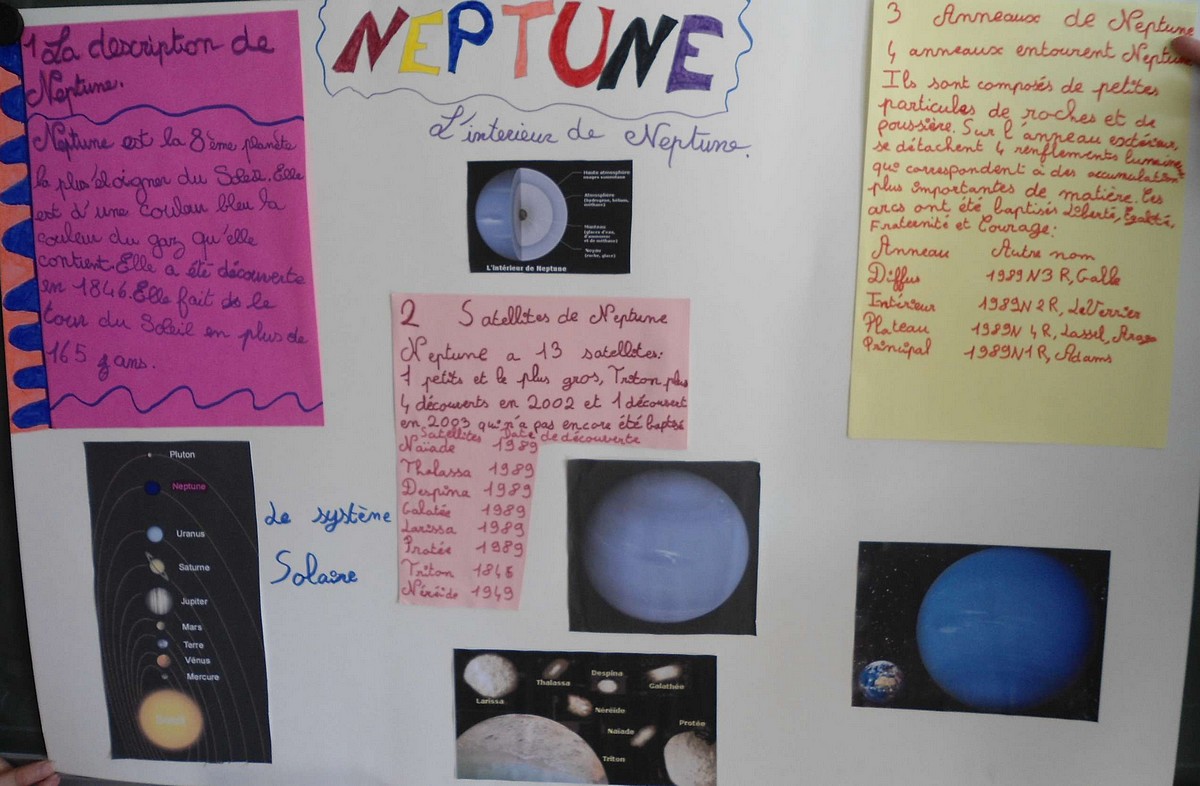 NEPTUNE
1 La description de
Neptune.
Neptune est la 8ème planète
la plus éloigner du Soleil. Elle
est d'une couleur bleu la
couleur du gaz qu'elle
contient. Elle a été découverte
en 1846. Elle fait de le
tour du Soleil en plus de
165 ans.
L'interieur de Neptune.
Haute atmosphère
nuages sommitaux
Atmosphère
(hydrogène, hélium,
méthane)
Manteau
(glaces d'eau,
d'ammoniac
et de méthane)
Noyau
(roche, glace)
L'intérieur de Neptune
2 Satellites de Neptune
Neptune a 13 satellites:
7 petits et le plus gros, Triton plus
4 découverts en 2002 et 1 découvert
en 2003 qui n'a pas encore été baptisé
Satellites Date de découverte
Naïade 1989
Thalassa 1989
Despina 1989
Galatée 1989
Larissa 1989
Protée 1989
Triton 1846
Néréide 1949
3 Anneaux de Neptune
4 anneaux entourent Neptune
Ils sont composés de petites
particules de roches et de
poussière. Sur l'anneau extérieur,
se détachent 4 renflements lumineux
qui correspondent à des accumulations
plus importantes de matière. Ces
arcs ont été baptisés Liberté, Egalité,
Fraternité et Courage:
Anneau Autre nom
Diffus 1989N3 R, Galle
Intérieur 1989N2R, LeVerrier
Plateau 1989N 4R, Lassel, Arago
Principal 1989N1R, Adams
Pluton
Neptune
Uranus
Saturne
Jupiter
Mars
Terre
Vénus
Mercure
Soleil
Le système
Solaire
Larissa
Thalassa
Despina
Galathée
Néréide
Naïade
Protée
Triton